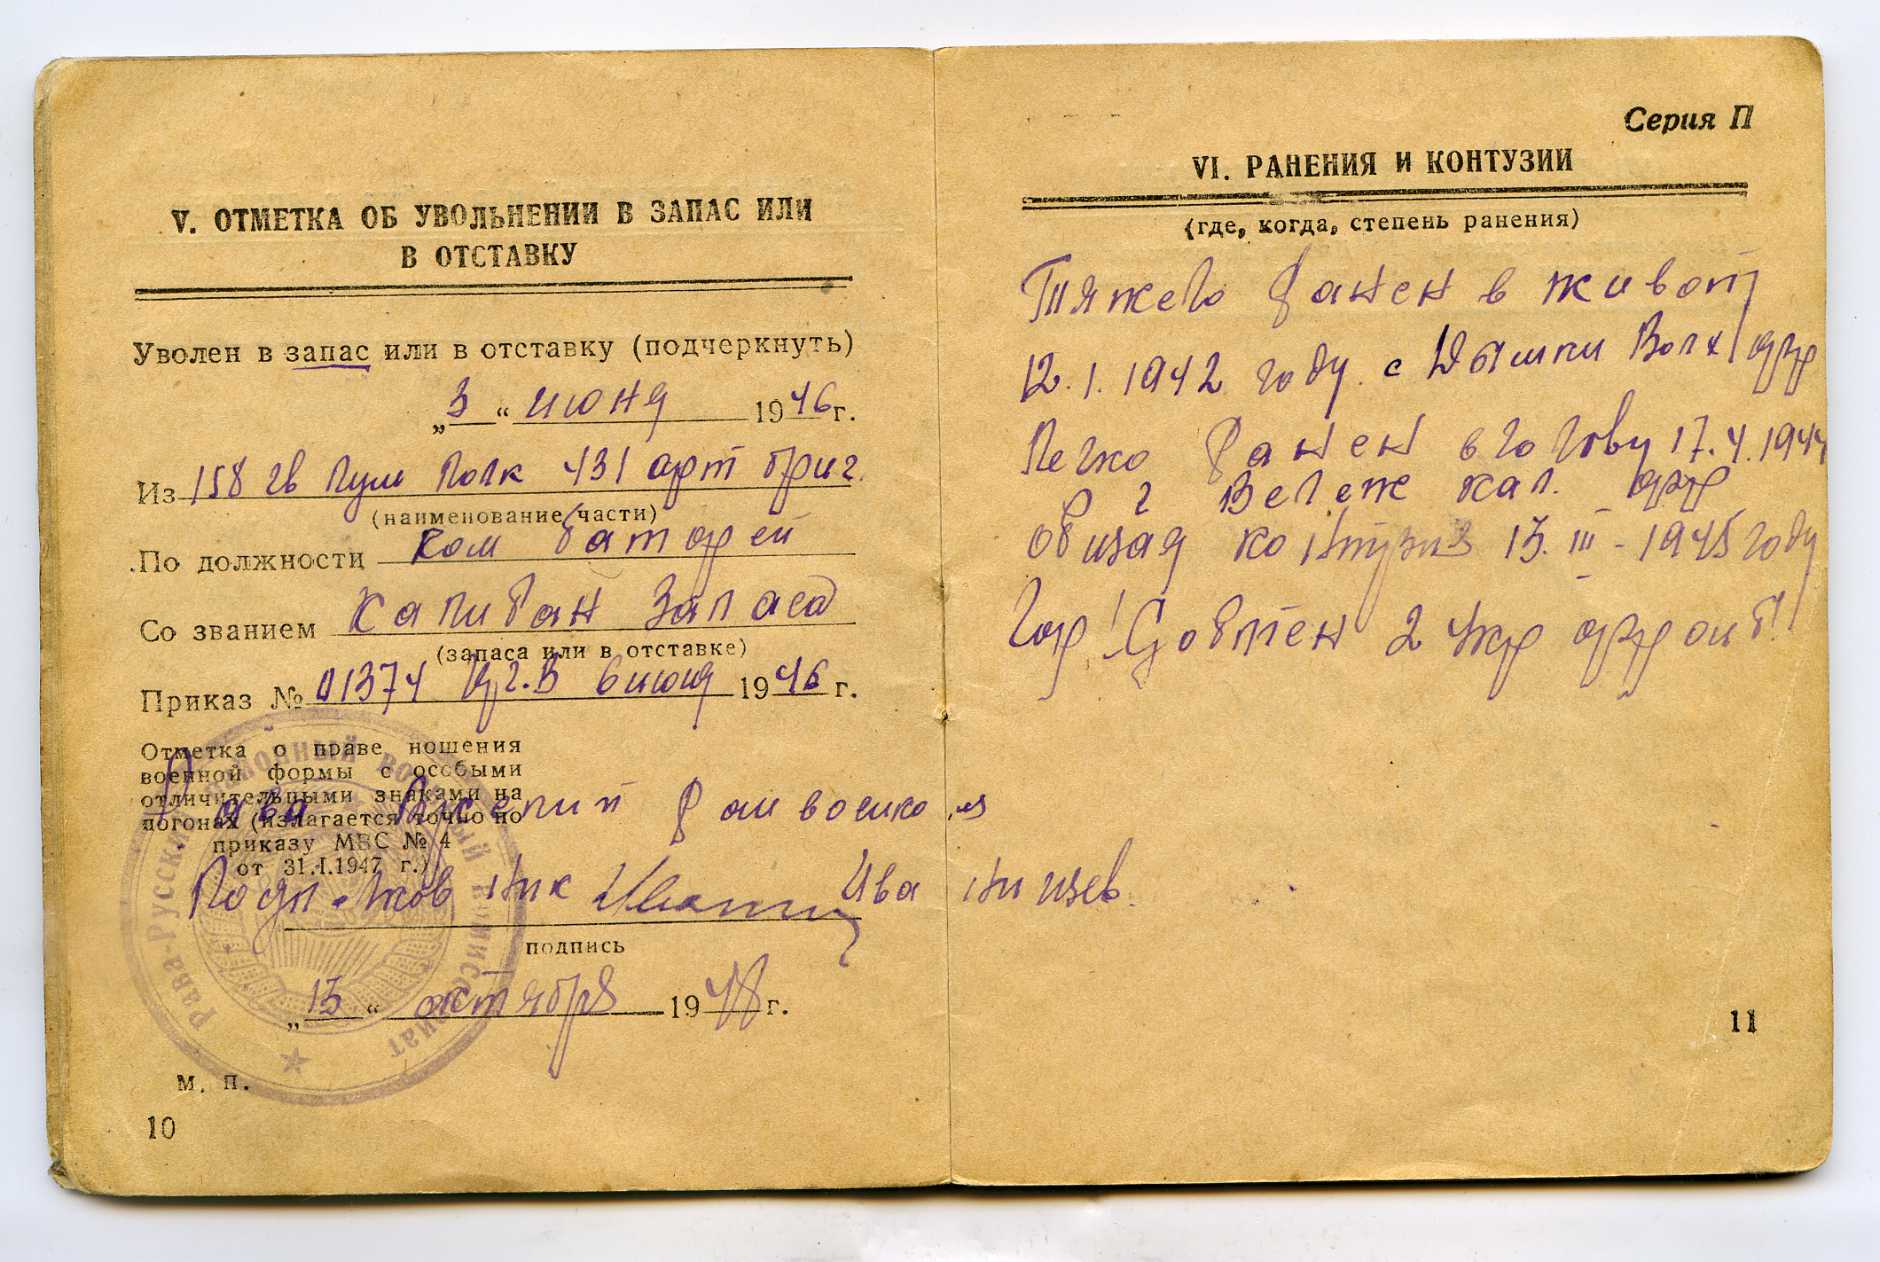 V. ОТМЕТКА ОБ УВОЛЬНЕНИИ В ЗАПАС ИЛИ
В ОТСТАВКУ
Уволен в запас или в отставку (подчеркнуть)
„3“ июня 1946 г.
Из 158 гв Пуш Полк 431 арт бриг.
(наименование части)
По должности ком батареи
Со званием Капитан Запаса
(запаса или в отставке)
Приказ № 01374 6 июня 1946 г.
Отметка о праве ношения
военной формы с особыми
отличительными знаками на
погонах (излагается точно по
приказу МВС № 4
от 31.I.1947 г.)
Рава Райвоенком
Подполковник Иванищев.
подпись
„15“ октября 1948 г.
м. п.
10
Рава-Русский районный военный комиссариат
Серия П
VI. РАНЕНИЯ И КОНТУЗИИ
(где, когда, степень ранения)
Тяжело ранен в живот
12.1.1942 году. с Волх фр
Легко ранен в голову 17.4.1944
г Вележ кал. фр
Общая контузия 13.III-1945 году
гор 2 укр фронт
11